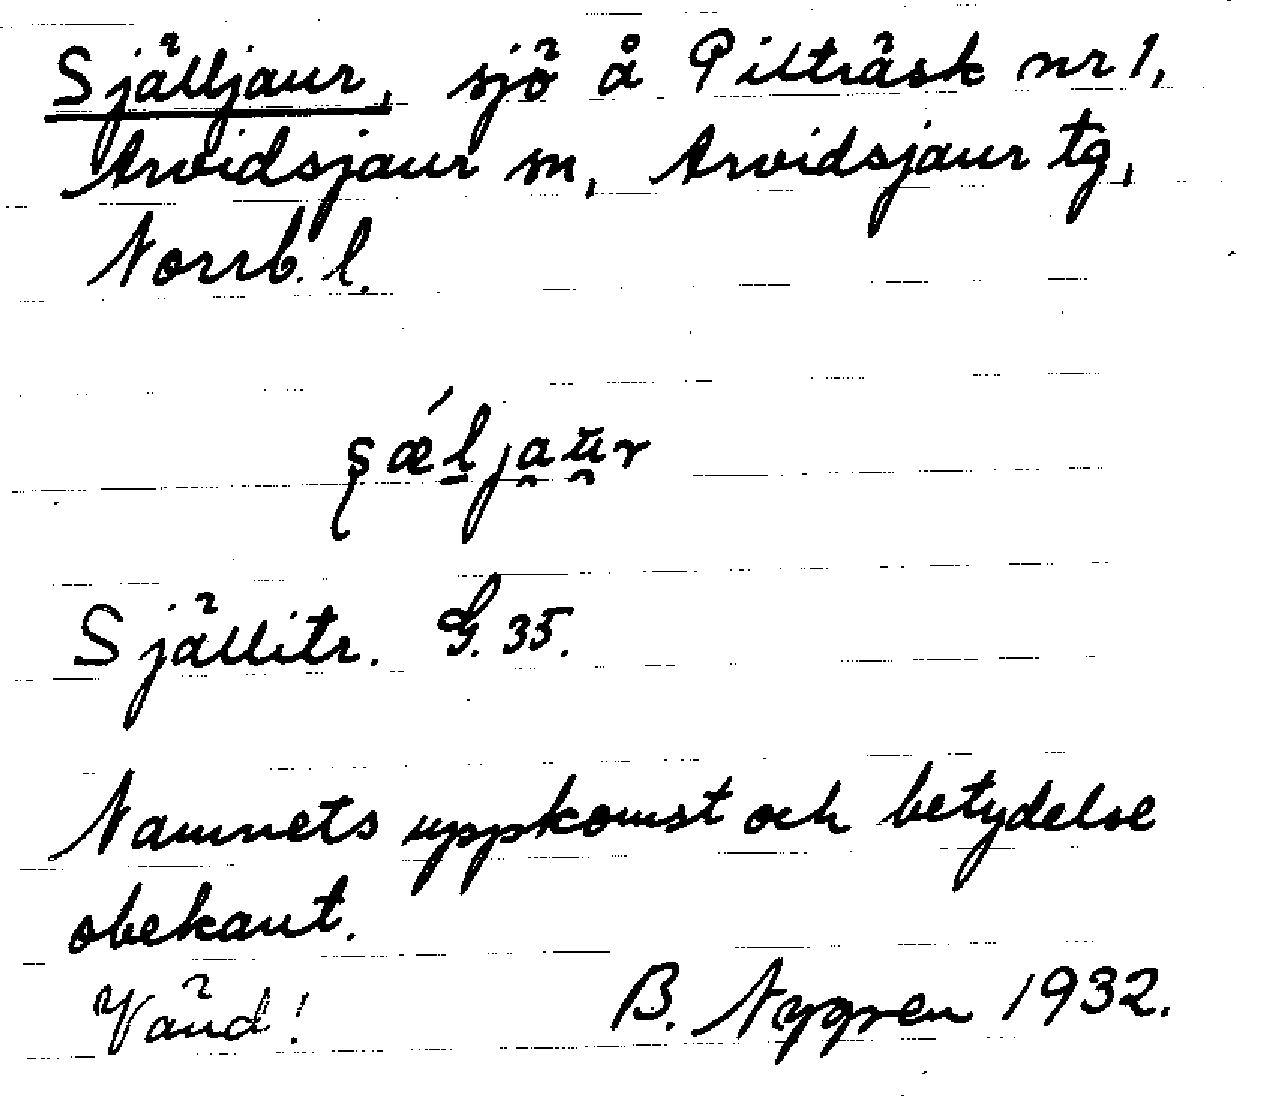 Självljaur, sjö å Pilträsk nr 1,
Arvidsjaur sn, Arvidsjaur tg,
Norrb. l.
şǽljau̯r
Källitr. G. 35.
Namnets uppkomst och betydelse
obekant.
Vänd! B. Nygren 1932.